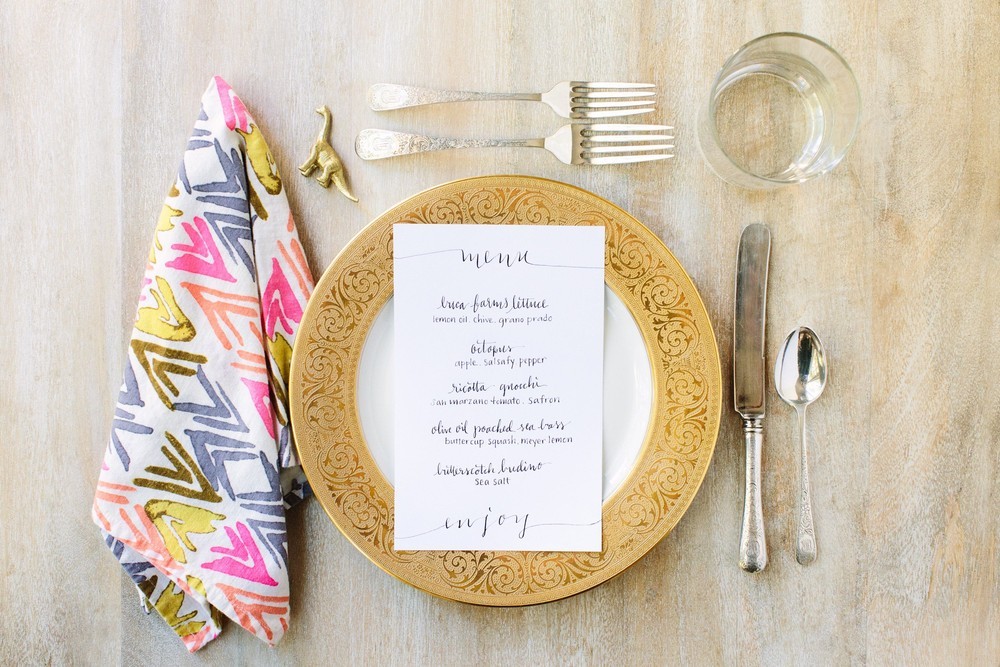 menu
luca farms lettuce
lemon oil, chive, grano prado
octopus
apple, salsafy pepper
ricotta gnocchi
san marzano tomato, safron
olive oil poached sea bass
buttercup squash, meyer lemon
butterscotch budino
sea salt
enjoy